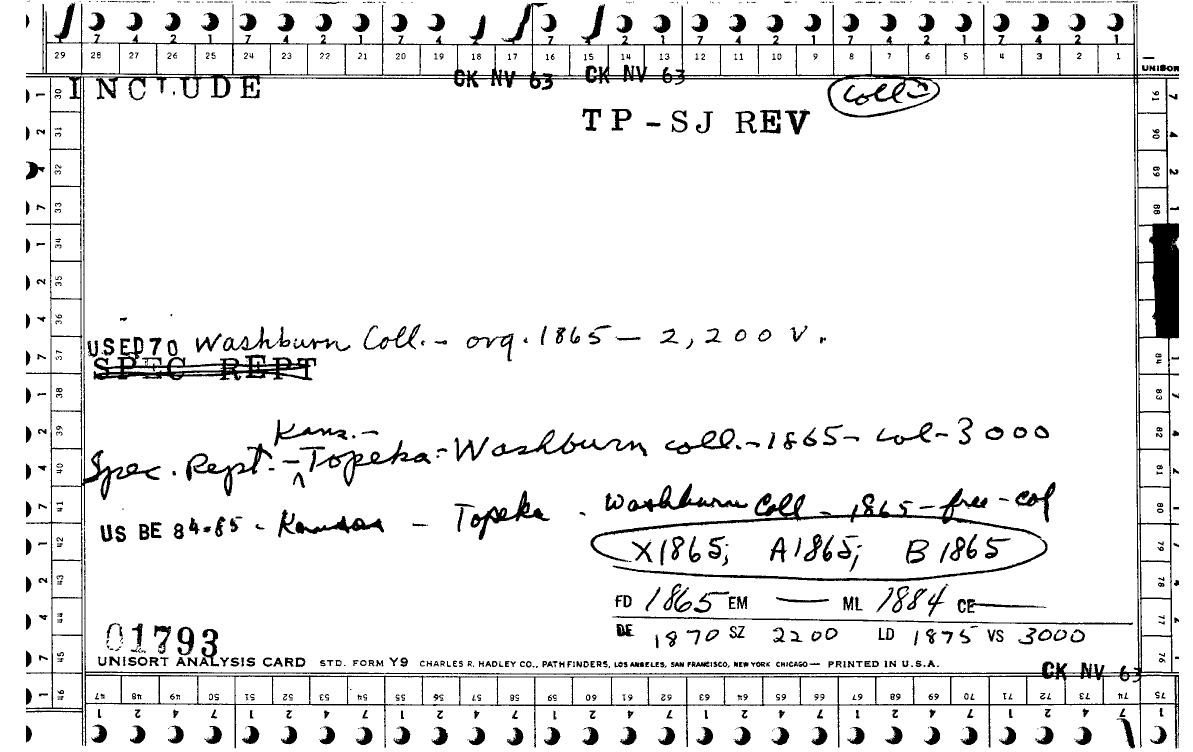 7 4 2 1 7 4 2 1 7 4 2 1 7 4 2 1 7 4 2 1
29 28 27 26 25 24 23 22 21 20 19 18 17 16 15 14 13 12 11 10 9 8 7 6 5 4 3 2 1
CK NV 63 CK NV 63
UNISOR
INCLUDE
Coll
TP-SJ REV
USED 70 Washburn Coll. - org. 1865 - 2,200 V.
SPEC REPT
Kans. -
Spec. Rept. - Topeka - Washburn coll. - 1865 - col - 3000
US BE 84-85 - Kansas - Topeka - Washburn Coll - 1865 - free - col
X1865; A1865; B1865
FD 1865 EM — ML 1884 CE —
DE 1870 SZ 2200 LD 1875 VS 3000
01793
UNISORT ANALYSIS CARD STD. FORM Y9 CHARLES R. HADLEY CO., PATHFINDERS, LOS ANGELES, SAN FRANCISCO, NEW YORK CHICAGO— PRINTED IN U.S.A.
CK NV 63
30 31 32 33 34 35 36 37 38 39 40 41 42 43 44 45 46
91 90 89 88 84 83 82 81 80 79 78 77 76
47 48 49 50 51 52 53 54 55 56 57 58 59 60 61 62 63 64 65 66 67 68 69 70 71 72 73 74 75